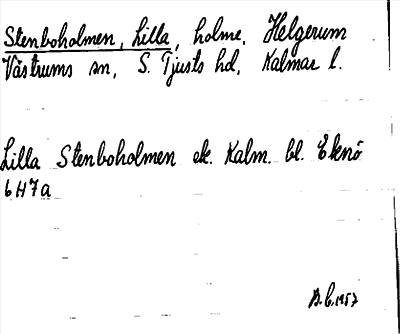 Stenboholmen, Lilla, holme, Helgerum
Västrums sn, S. Tjusts hd, Kalmar l.
Lilla Stenboholmen ek. Kalm. bl. Eknö
6H7a
B.L. 1957